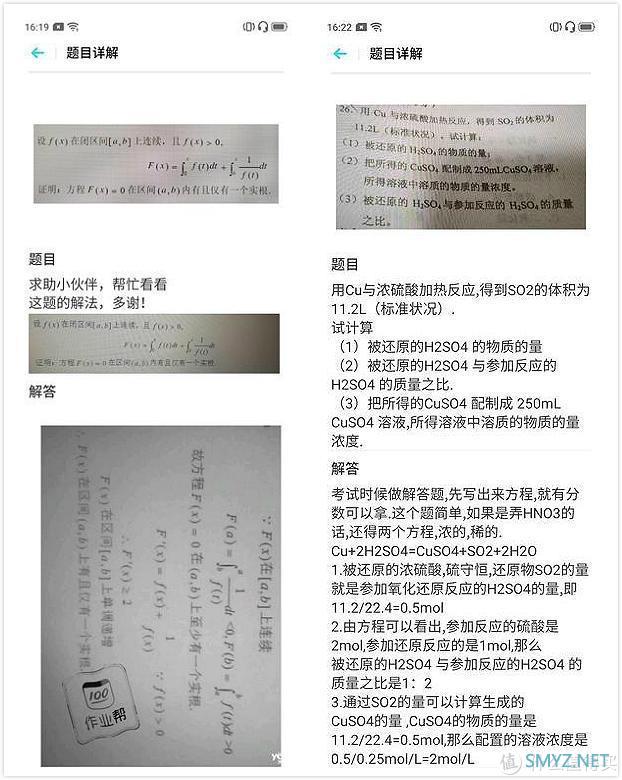 16:19
题目详解
设 f(x) 在闭区间[a,b]上连续，且 f(x)>0,
F(x) = ∫ f(t)dt + ∫ 1/f(t) dt
证明：方程 F(x)=0 在区间(a,b)内有且仅有一个实根.
题目
求助小伙伴，帮忙看看
这题的解法，多谢！
设 f(x) 在闭区间[a,b]上连续，且 f(x)>0,
F(x) = ∫ f(t)dt + ∫ 1/f(t) dt
证明：方程 F(x)=0 在区间(a,b)内有且仅有一个实根.
解答
∵ F(x)在[a,b]上连续
F(a)=∫ 1/f(t) dt<0, F(b)=∫ f(t)dt>0
故方程 F(x)=0 在(a,b)上至少有一个实根.
F'(x)=f(x)+1/f(x) ∵ f(x)>0
∴ F'(x)≥2
F(x)在区间[a,b]上单调递增
∴ F(x)在区间(a,b)上有且仅有一个实根
100
作业帮
16:22
题目详解
26、用 Cu 与浓硫酸加热反应，得到 SO₂ 的体积为
11.2L（标准状况）。试计算：
(1) 被还原的 H₂SO₄ 的物质的量；
(2) 把所得的 CuSO₄ 配制成 250mLCuSO₄ 溶液，
所得溶液中溶质的物质的量浓度。
(3) 被还原的 H₂SO₄ 与参加反应的 H₂SO₄ 的质量
之比。
题目
用Cu与浓硫酸加热反应,得到SO2的体积为
11.2L（标准状况）.
试计算
（1）被还原的H2SO4 的物质的量
（2）被还原的H2SO4 与参加反应的
H2SO4 的质量之比.
（3）把所得的CuSO4 配制成 250mL
CuSO4 溶液,所得溶液中溶质的物质的量
浓度.
解答
考试时候做解答题,先写出来方程,就有分
数可以拿.这个题简单,如果是弄HNO3的
话,还得两个方程,浓的,稀的.
Cu+2H2SO4=CuSO4+SO2+2H2O
1.被还原的浓硫酸,硫守恒,还原物SO2的量
就是参加氧化还原反应的H2SO4的量,即
11.2/22.4=0.5mol
2.由方程可以看出,参加反应的硫酸是
2mol,参加还原反应的是1mol,那么
被还原的H2SO4 与参加反应的H2SO4 的
质量之比是1：2
3.通过SO2的量可以计算生成的
CuSO4的量 ,CuSO4的物质的量是
11.2/22.4=0.5mol,那么配置的溶液浓度是
0.5/0.25mol/L=2mol/L
SMYZ.NET